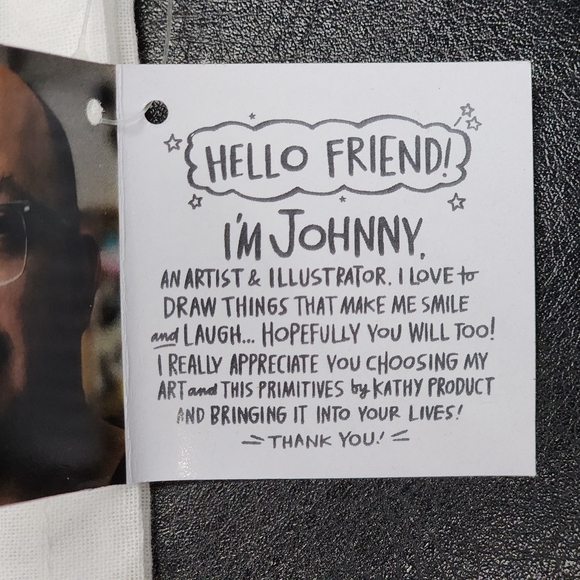 HELLO FRIEND!
I'M JOHNNY,
AN ARTIST & ILLUSTRATOR. I LOVE to
DRAW THINGS THAT MAKE ME SMILE
and LAUGH... HOPEFULLY YOU WILL TOO!
I REALLY APPRECIATE YOU CHOOSING MY
ART and THIS PRIMITIVES by KATHY PRODUCT
AND BRINGING IT INTO YOUR LIVES!
THANK YOU!